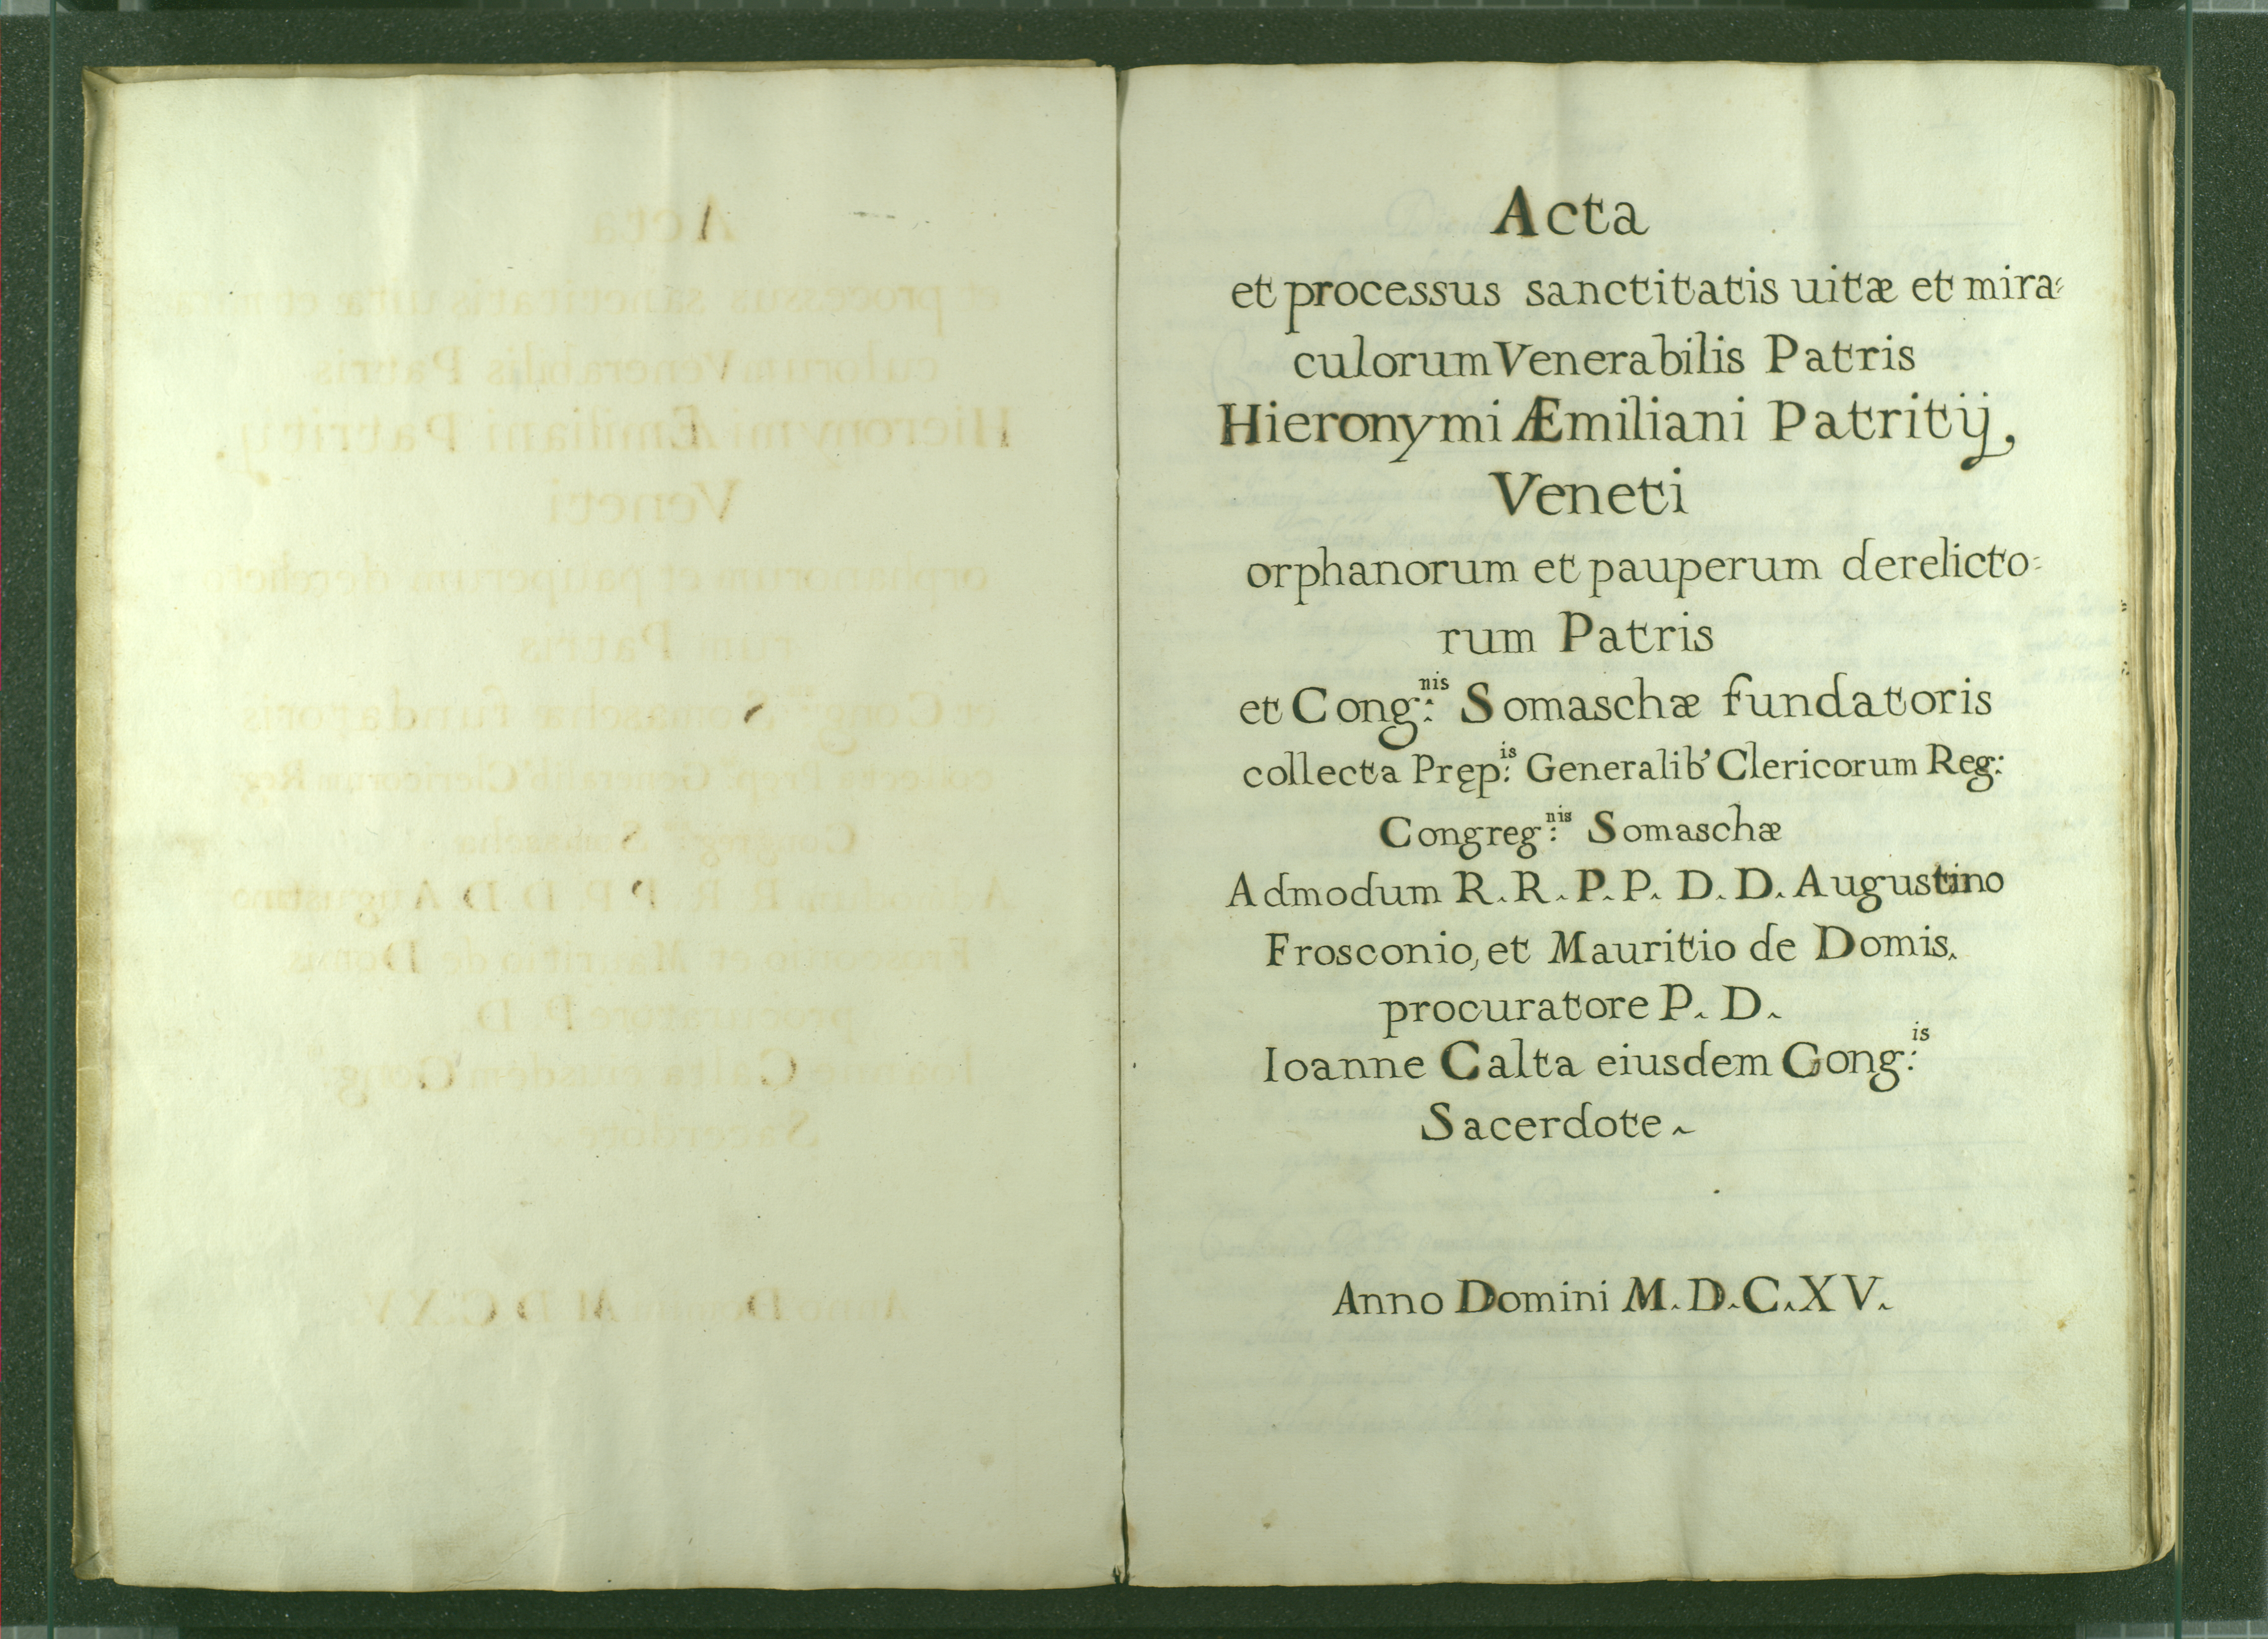 Acta
et processus sanctitatis uitæ et mira=
culorum Venerabilis Patris
Hieronymi Æmiliani Patritij,
Veneti
orphanorum et pauperum derelicto=
rum Patris
et Cong:nis Somaschæ fundatoris
collecta Pręp:is Generalib' Clericorum Reg:
Congreg:nis Somaschæ
Admodum R. R. P. P. D. D. Augustino
Frosconio, et Mauritio de Domis.
procuratore P. D.
Ioanne Calta eiusdem Cong:is
Sacerdote.
Anno Domini M. D. C. X V.